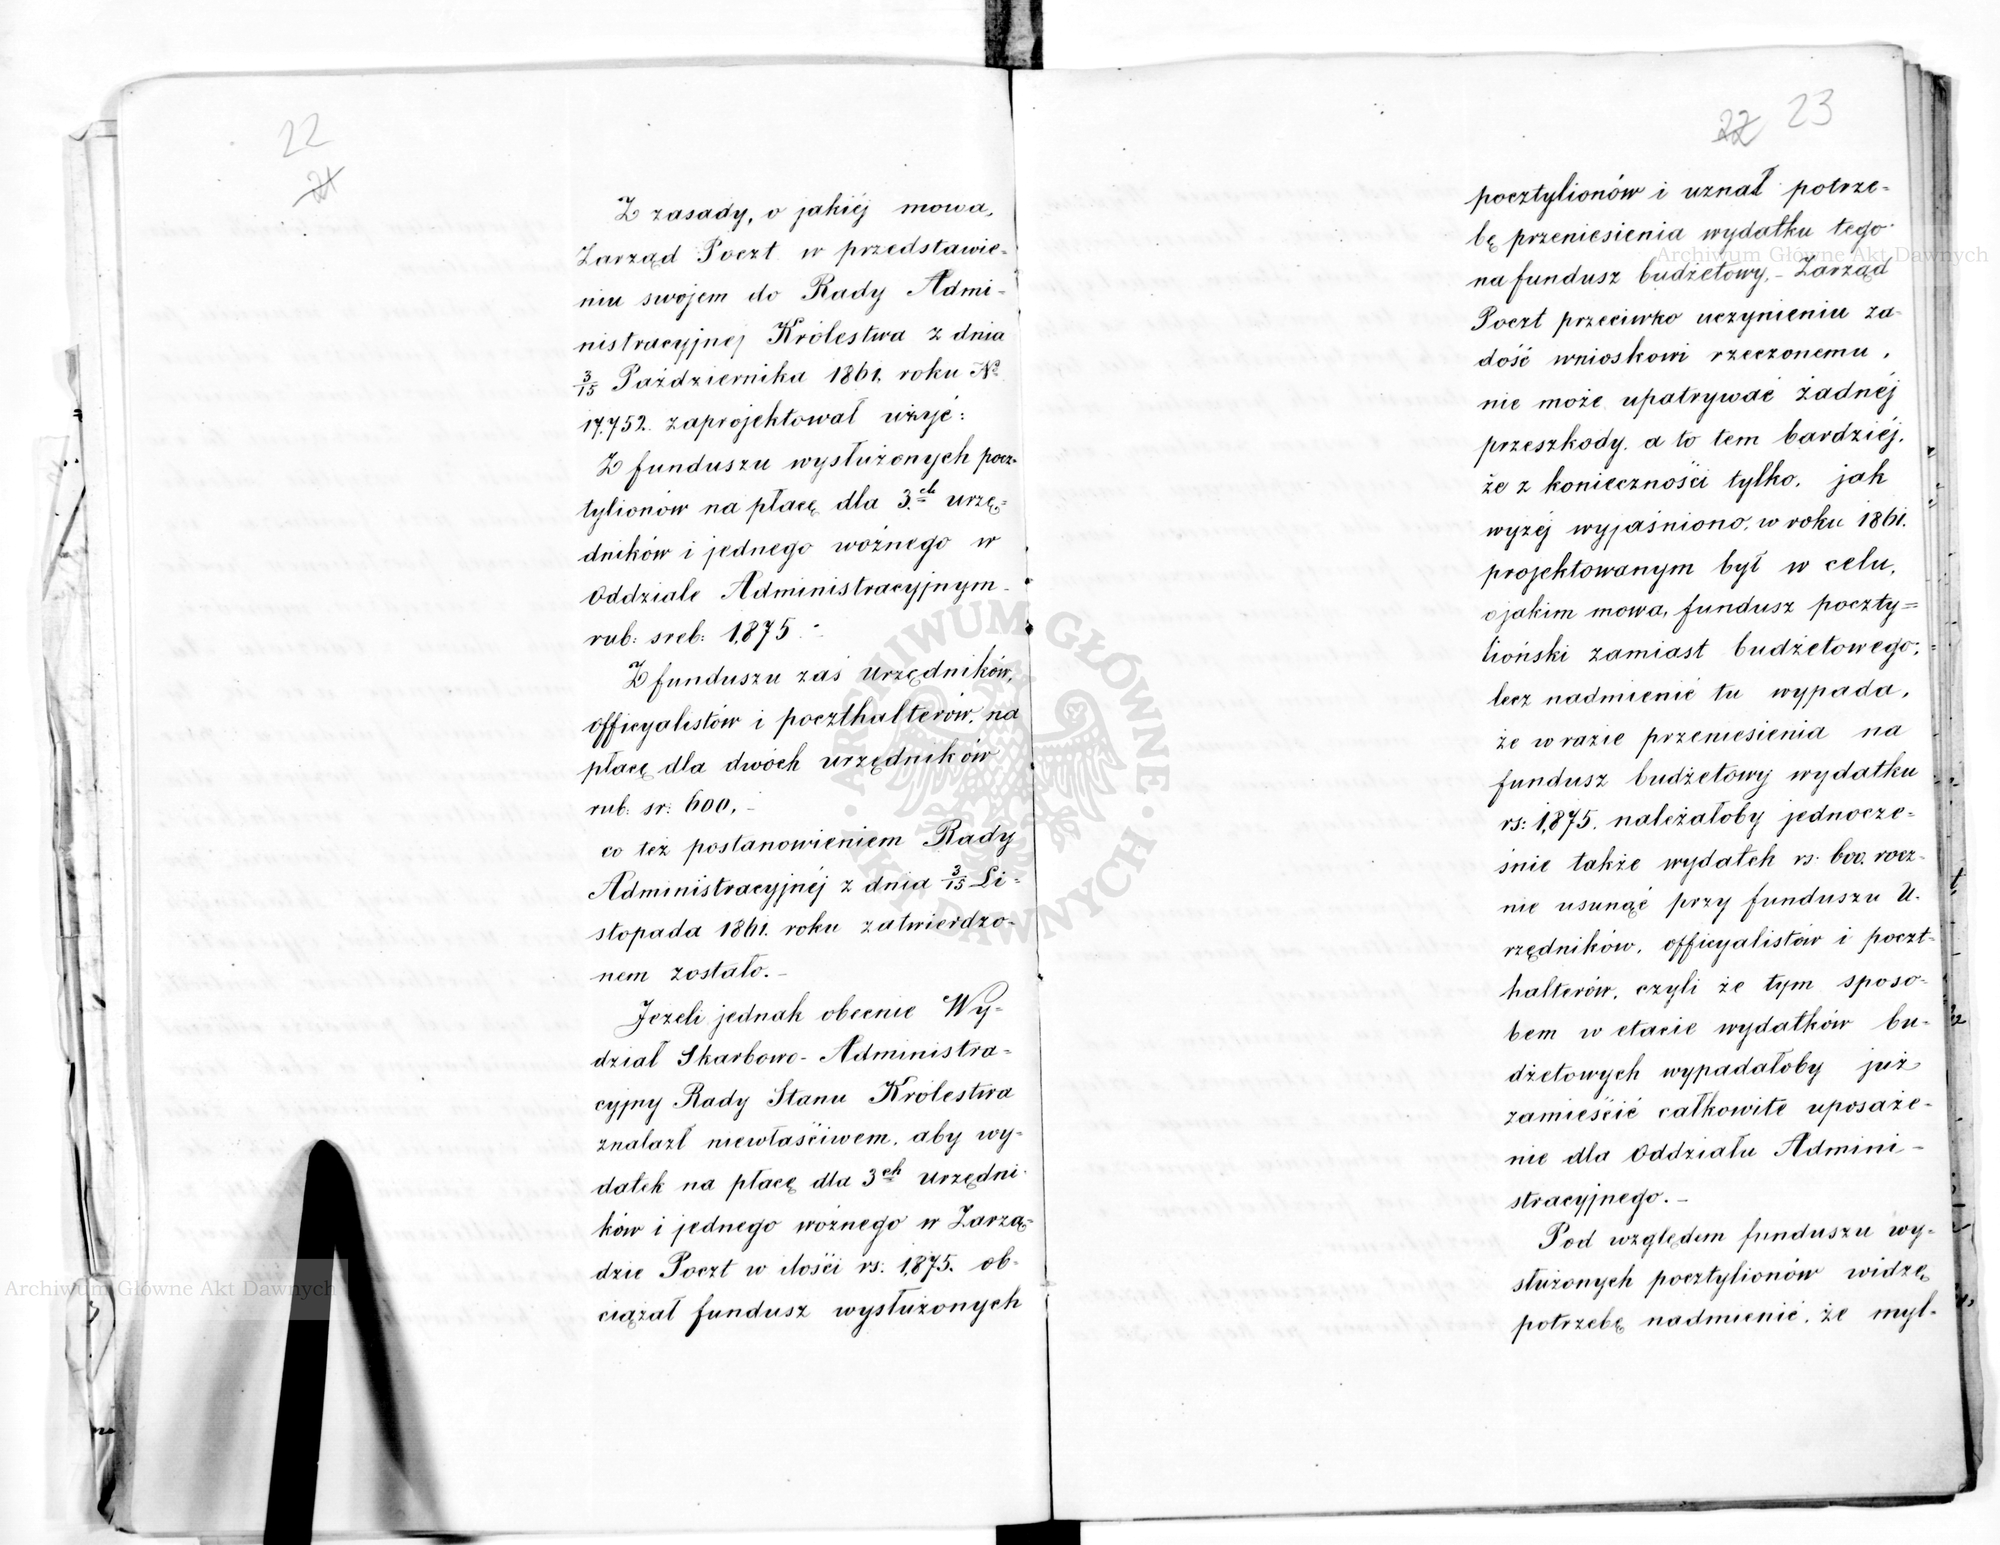 22
21
Z zasady, o jakiéj mowa,
Zarząd Poczt w przedstawie-
niu swojem do Rady Admi-
nistracyjnej Królestwa z dnia
3/15 Października 1861. roku No
17.752. zaprojektował użyć:
Z funduszu wysłużonych pocz-
tylionów na płacę dla 3.ch urzę-
dników i jednego woźnego w
Oddziale Administracyjnym
rub: sreb: 1,875.-
Z funduszu zaś Urzędników,
officyalistów i poczthalterów, na
płacę dla dwóch urzędników
rub: sr: 600,-
co też postanowieniem Rady
Administracyjnéj z dnia 3/15 Li-
stopada 1861. roku zatwierdzo-
nem zostało.-
Jeżeli jednak obecnie Wy-
dział Skarbowo-Administra-
cyjny Rady Stanu Królestwa
znalazł niewłaściwem, aby wy-
datek na płacę dla 3ch Urzędni-
ków i jednego woźnego w Zarzą-
dzie Poczt w ilości rs: 1,875. ob-
ciążał fundusz wysłużonych
22 23
pocztylionów i uznał potrze-
bę przeniesienia wydatku tego
na fundusz budżetowy,- Zarząd
Poczt przeciwko uczynieniu za-
dość wnioskowi rzeczonemu,
nie może upatrywać żadnéj
przeszkody, a to tem bardziéj,
że z konieczności tylko, jak
wyżéj wyjaśniono, w roku 1861.
projektowanym był w celu,
o jakim mowa, fundusz poczty-
lioński zamiast budżetowego;
lecz nadmienić tu wypada,
że w razie przeniesienia na
fundusz budżetowy wydatku
rs: 1,875. należałoby jednocze-
śnie także wydatek rs. 600. rocz-
nie usunąć przy funduszu U-
rzędników, officyalistów i poczt-
halterów, czyli że tym sposo-
bem w etacie wydatków bu-
dżetowych wypadałoby już
zamieścić całkowite uposaże-
nie dla Oddziału Admini-
stracyjnego.-
Pod względem funduszu wy-
służonych pocztylionów widzę
potrzebę nadmienić, że myl-
Archiwum Główne Akt Dawnych
Archiwum Główne Akt Dawnych
ARCHIWUM GŁÓWNE AKT DAWNYCH